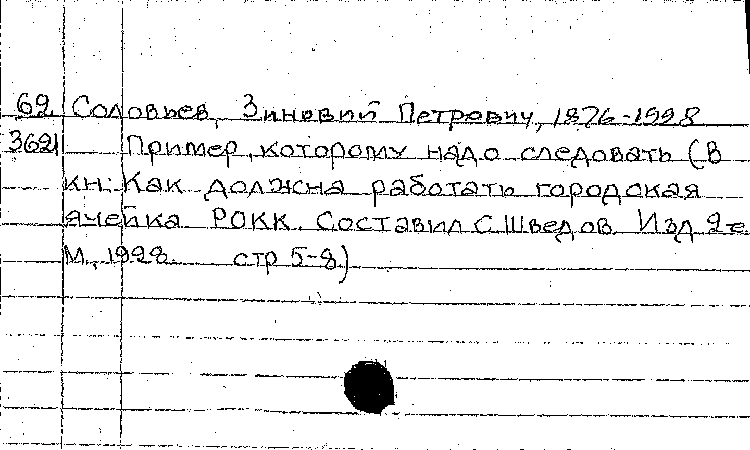 62 Соловьев, Зиновий Петрович, 1876-1928
3621 Пример, которому надо следовать (В
кн: Как должна работать городская
ячейка РОКК. Составил С. Шведов. Изд 2-е.
М., 1928. стр 5-8)